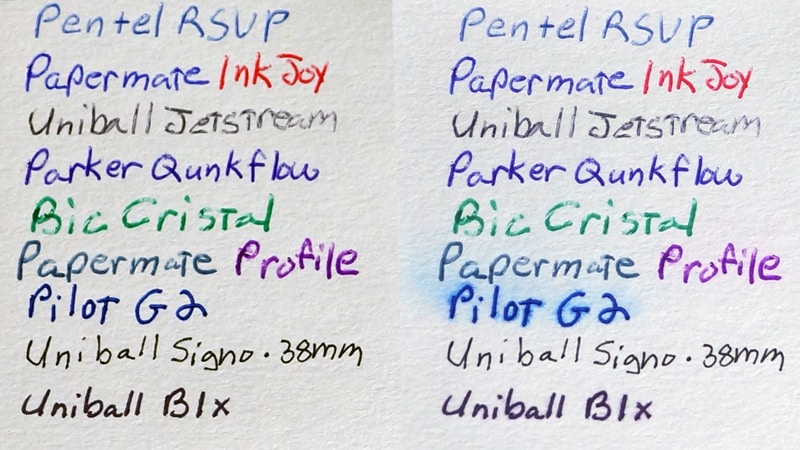 Pentel RSVP
Papermate InkJoy
Uniball Jetstream
Parker Qunkflow
Bic Cristal
Papermate Profile
Pilot G2
Uniball Signo .38mm
Uniball Blx
Pentel RSVP
Papermate InkJoy
Uniball Jetstream
Parker Qunkflow
Bic Cristal
Papermate Profile
Pilot G2
Uniball Signo .38mm
Uniball Blx